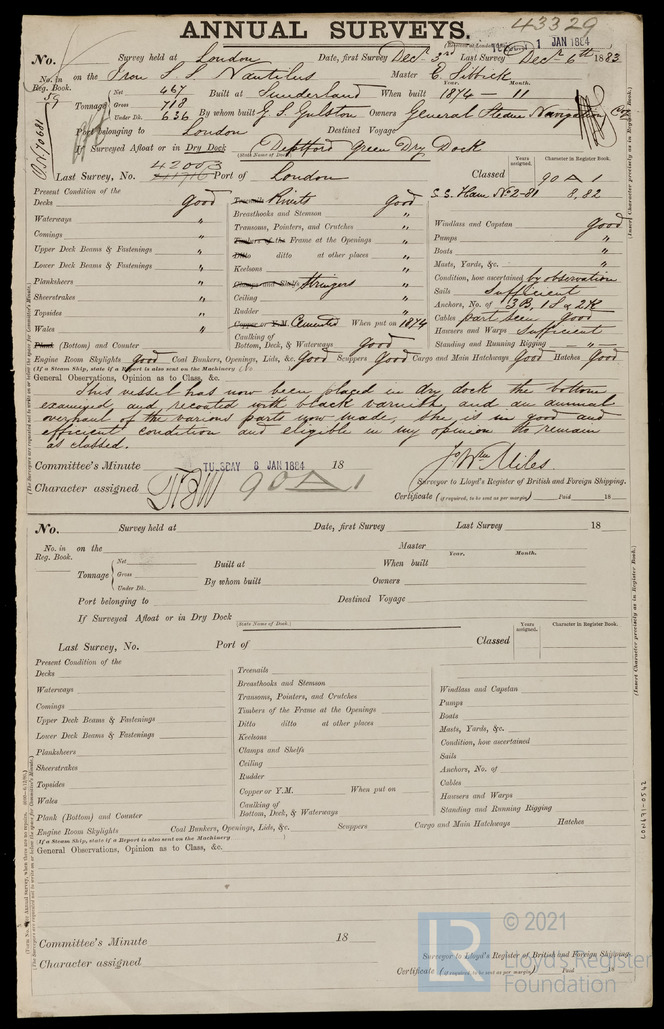 43329
ANNUAL SURVEYS.
(Received at London Office) 1 JAN 1884
No. Survey held at London Date, first Survey Decr. 3rd Last Survey Decr. 6th 1883
No. in Reg. Book. 59 on the Iron S.S. Nautilus Master E. Sibbick
Tonnage Net 467 Gross 718 Under Dk. 636 Built at Sunderland When built Year. 1874 — Month. 11
By whom built G. S. Gulston Owners General Steam Navigation Coy
Port belonging to London Destined Voyage
If Surveyed Afloat or in Dry Dock Deptford Green Dry Dock
(State Name of Dock.)
Years assigned. Character in Register Book.
Last Survey, No. 42003 Port of London Classed 90 A 1
S.S. Ham. No 2-81 8,82
Present Condition of the
Decks Good
Waterways "
Comings "
Upper Deck Beams & Fastenings "
Lower Deck Beams & Fastenings "
Planksheers "
Sheerstrakes "
Topsides "
Wales "
Plank (Bottom) and Counter
Treenails Rivets Good
Breasthooks and Stemson "
Transoms, Pointers, and Crutches "
Timbers of the Frame at the Openings "
Ditto ditto at other places "
Keelsons "
Clamps and Shelfs Stringers "
Ceiling "
Rudder "
Copper or Y.M. Cemented When put on 1874
Caulking of Bottom, Deck, & Waterways Good
Windlass and Capstan Good
Pumps "
Boats "
Masts, Yards, &c. "
Condition, how ascertained by observation
Sails Sufficient
Anchors, No. of 3B, 1S & 2K
Cables part seen good
Hawsers and Warps Sufficient
Standing and Running Rigging — " —
Engine Room Skylights Good Coal Bunkers, Openings, Lids, &c. Good Scuppers Good Cargo and Main Hatchways Good Hatches Good
(If a Steam Ship, state if a Report is also sent on the Machinery No.
General Observations, Opinion as to Class, &c.
This vessel has now been placed in dry dock the bottom
examined and recoated with black varnish and an annual
overhaul of the various parts now made, she is in good and
efficient condition and eligible in my opinion to remain
as classed.
Committee's Minute TUESDAY 8 JAN 1884 18
Jo Wm Miles.
Surveyor to Lloyd's Register of British and Foreign Shipping.
Character assigned 90 A 1
Certificate (if required, to be sent as per margin) Paid 18
No. Survey held at Date, first Survey Last Survey 18
No. in Reg. Book. on the Master
Tonnage Net Gross Under Dk. Built at When built Year. Month.
By whom built Owners
Port belonging to Destined Voyage
If Surveyed Afloat or in Dry Dock
(State Name of Dock.)
Years assigned. Character in Register Book.
Last Survey, No. Port of Classed
Present Condition of the
Decks
Waterways
Comings
Upper Deck Beams & Fastenings
Lower Deck Beams & Fastenings
Planksheers
Sheerstrakes
Topsides
Wales
Plank (Bottom) and Counter
Treenails
Breasthooks and Stemson
Transoms, Pointers, and Crutches
Timbers of the Frame at the Openings
Ditto ditto at other places
Keelsons
Clamps and Shelfs
Ceiling
Rudder
Copper or Y.M. When put on
Caulking of Bottom, Deck, & Waterways
Windlass and Capstan
Pumps
Boats
Masts, Yards, &c.
Condition, how ascertained
Sails
Anchors, No. of
Cables
Hawsers and Warps
Standing and Running Rigging
Engine Room Skylights Coal Bunkers, Openings, Lids, &c. Scuppers Cargo and Main Hatchways Hatches
(If a Steam Ship, state if a Report is also sent on the Machinery )
General Observations, Opinion as to Class, &c.
Committee's Minute 18
Surveyor to Lloyd's Register of British and Foreign Shipping.
Character assigned
Certificate (if required, to be sent as per margin) Paid 18
(Insert Character precisely as in Register Book.)
(Insert Character precisely as in Register Book.)
LON691-0542
LR © 2021
Lloyd's Register
Foundation